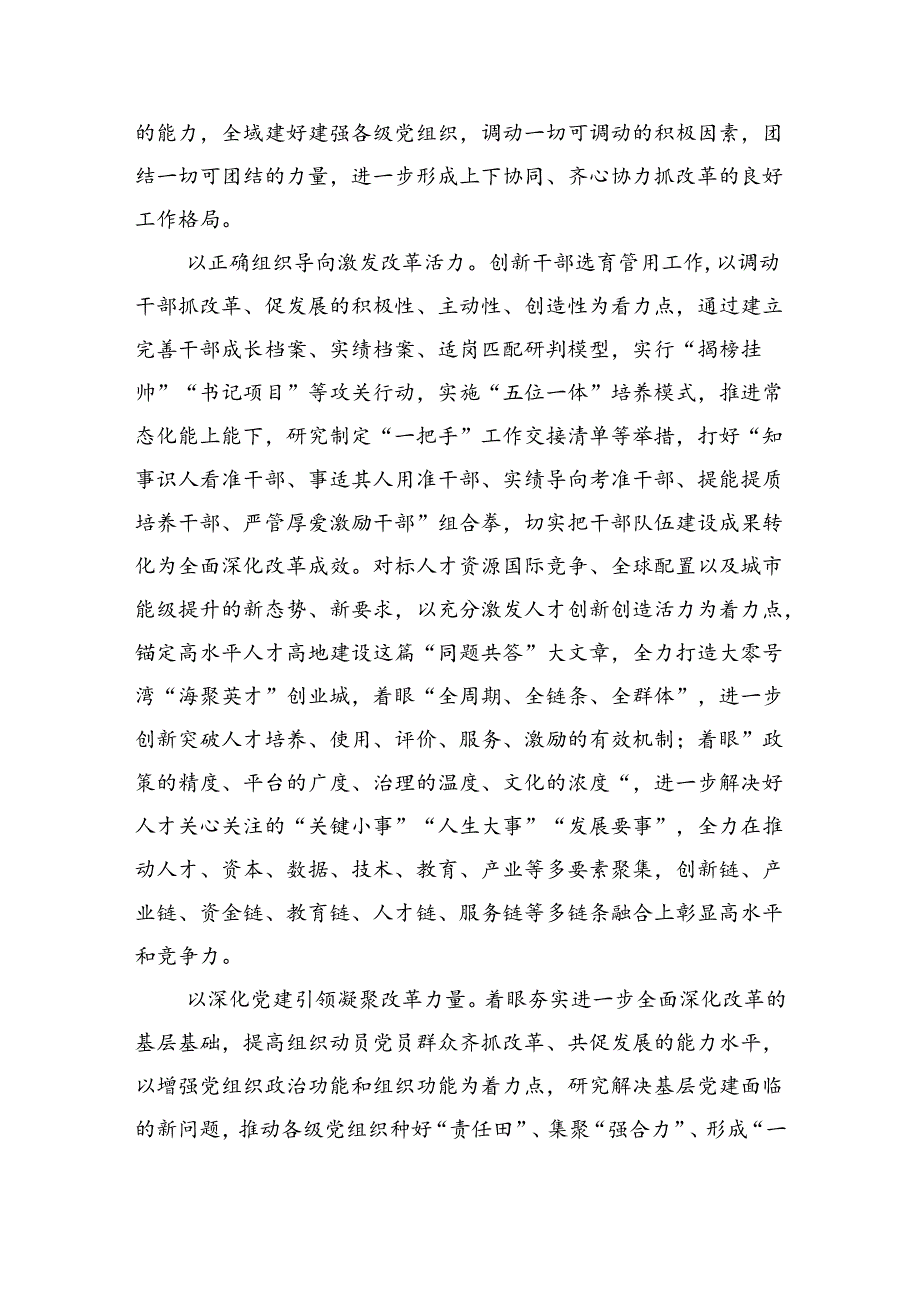 的能力，全域建好建强各级党组织，调动一切可调动的积极因素，团
结一切可团结的力量，进一步形成上下协同、齐心协力抓改革的良好
工作格局。
以正确组织导向激发改革活力。创新干部选育管用工作,以调动
干部抓改革、促发展的积极性、主动性、创造性为看力点，通过建立
完善干部成长档案、实绩档案、适岗匹配研判模型，实行“揭榜挂
帅”“书记项目”等攻关行动，实施“五位一体”培养模式，推进常
态化能上能下，研究制定“一把手”工作交接清单等举措，打好“知
事识人看准干部、事适其人用准干部、实绩导向考准干部、提能提质
培养干部、严管厚爱激励干部”组合拳，切实把干部队伍建设成果转
化为全面深化改革成效。对标人才资源国际竞争、全球配置以及城市
能级提升的新态势、新要求，以充分激发人才创新创造活力为着力点，
锚定高水平人才高地建设这篇“同题共答”大文章，全力打造大零号
湾“海聚英才”创业城，着眼“全周期、全链条、全群体”，进一步
创新突破人才培养、使用、评价、服务、激励的有效机制；着眼”政
策的精度、平台的广度、治理的温度、文化的浓度“，进一步解决好
人才关心关注的“关键小事”“人生大事”“发展要事”，全力在推
动人才、资本、数据、技术、教育、产业等多要素聚集，创新链、产
业链、资金链、教育链、人才链、服务链等多链条融合上彰显高水平
和竞争力。
以深化党建引领凝聚改革力量。着眼夯实进一步全面深化改革的
基层基础，提高组织动员党员群众齐抓改革、共促发展的能力水平，
以增强党组织政治功能和组织功能为着力点，研究解决基层党建面临
的新问题，推动各级党组织种好“责任田”、集聚“强合力”、形成“一